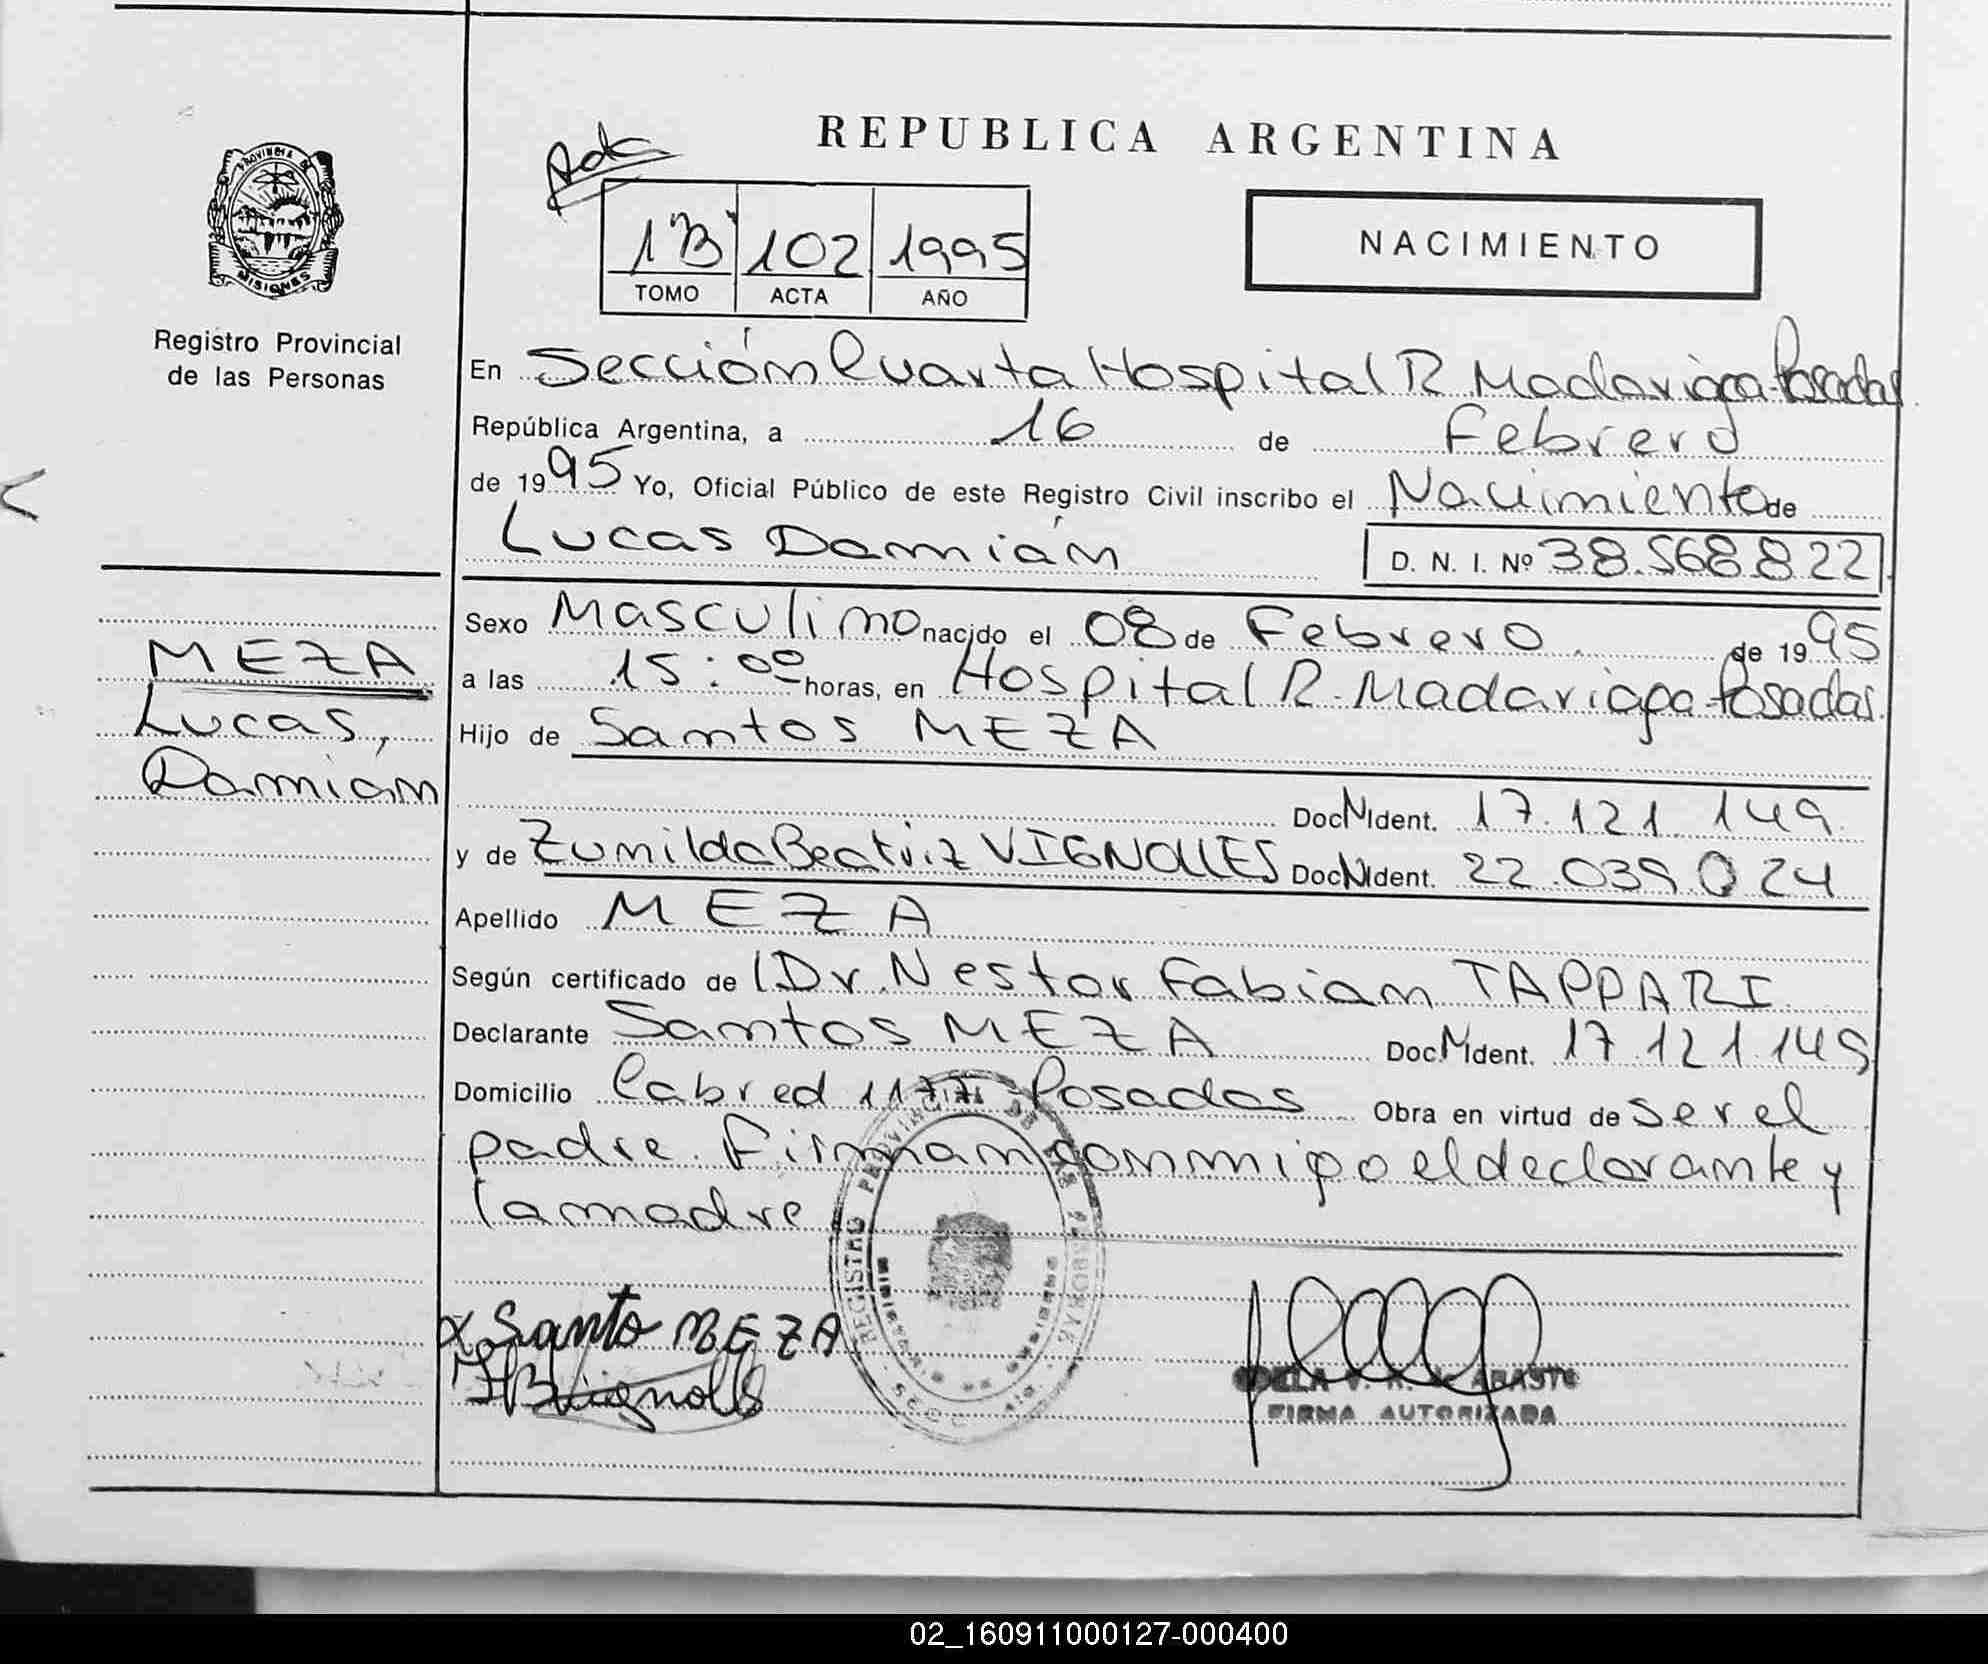 REPUBLICA ARGENTINA
PROVINCIA DE
MISIONES
Registro Provincial
de las Personas
1B 102 1995
TOMO ACTA AÑO
NACIMIENTO
En Sección Cuarta Hospital R. Madariaga-Posadas
República Argentina, a 16 de Febrero
de 1995 Yo, Oficial Público de este Registro Civil inscribo el Nacimiento de
Lucas Damián D. N. I. Nº 38.568.822
Sexo Masculino nacido el 08 de Febrero de 1995
a las 15:00 horas, en Hospital R. Madariaga Posadas.
Hijo de Santos MEZA
Doc N Ident. 17.121.149
y de Zunilda Beatriz VIGNOLLES Doc N Ident. 22.039.024
Apellido MEZA
Según certificado de Dr. Nestor Fabian TAPPARI
Declarante Santos MEZA Doc N Ident. 17.121.149
Domicilio Cabred 1177 Posadas Obra en virtud de ser el
padre. Firman conmigo el declarante y
la madre
MEZA
Lucas,
Damián
x Santo MEZA
REGISTRO PROVINCIAL DE LAS PERSONAS
FIRMA AUTORIZADA
02_160911000127-000400